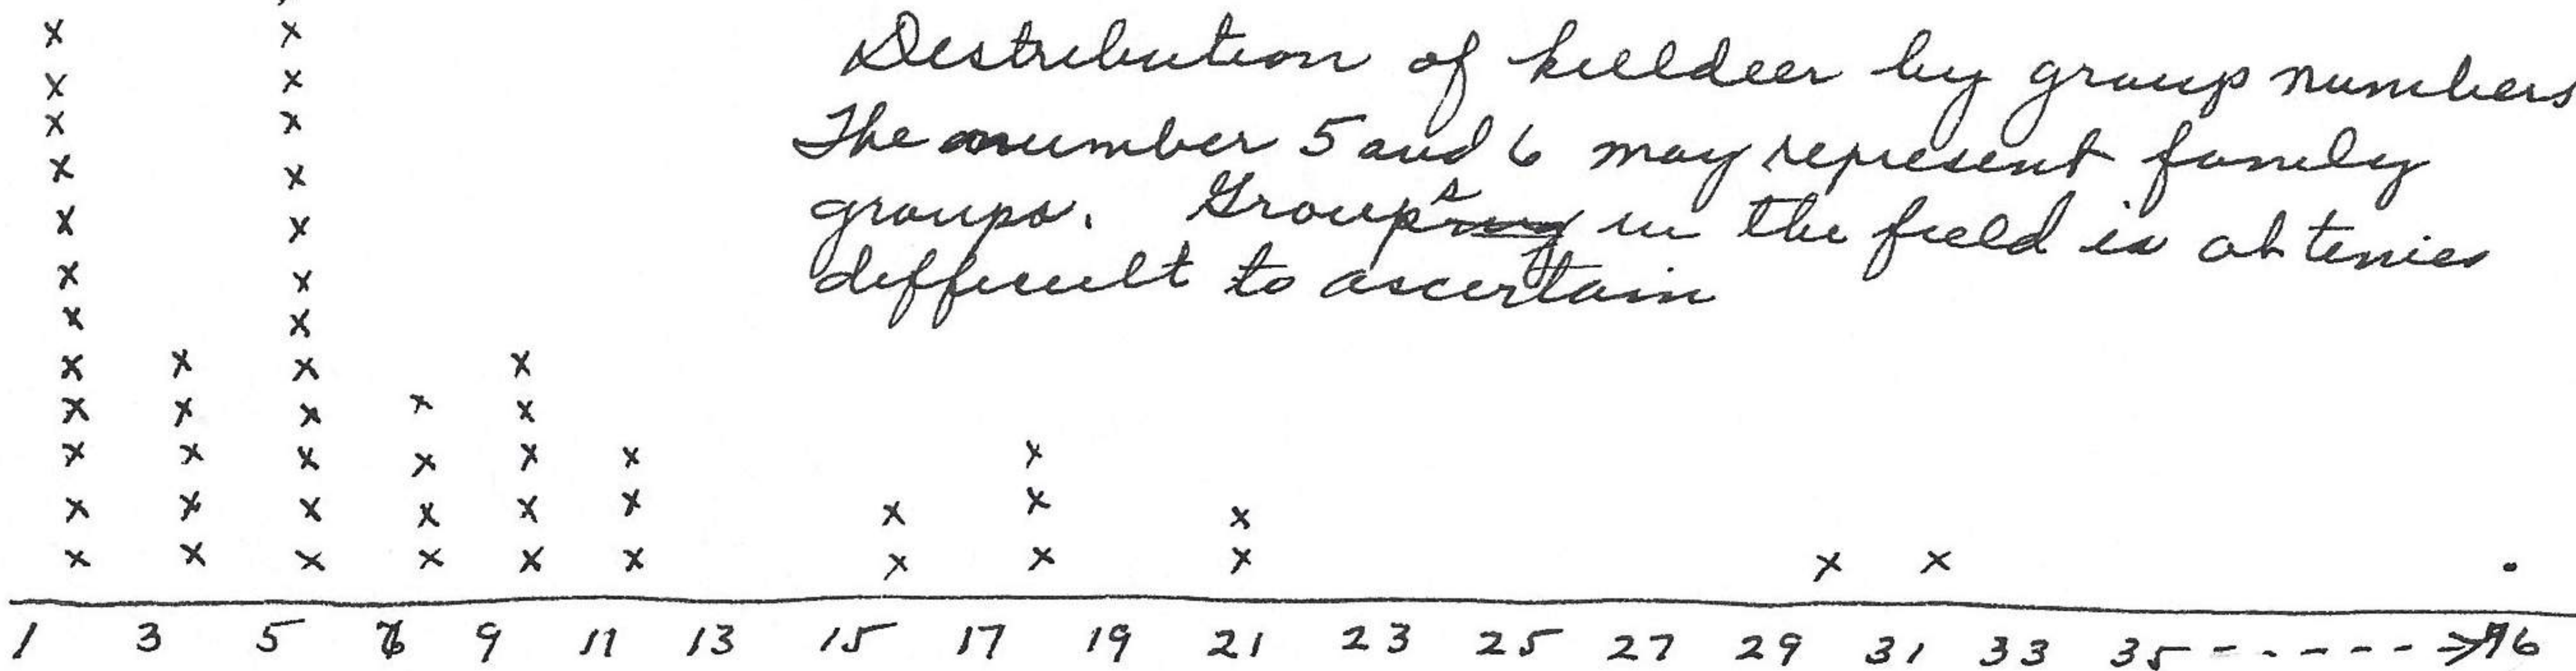 Distribution of killdeer by group numbers
The number 5 and 6 may represent family
groups. Groups in the field is at times
difficult to ascertain
1 3 5 9 11 13 15 17 19 21 23 25 27 29 31 33 35 - - - - - ->